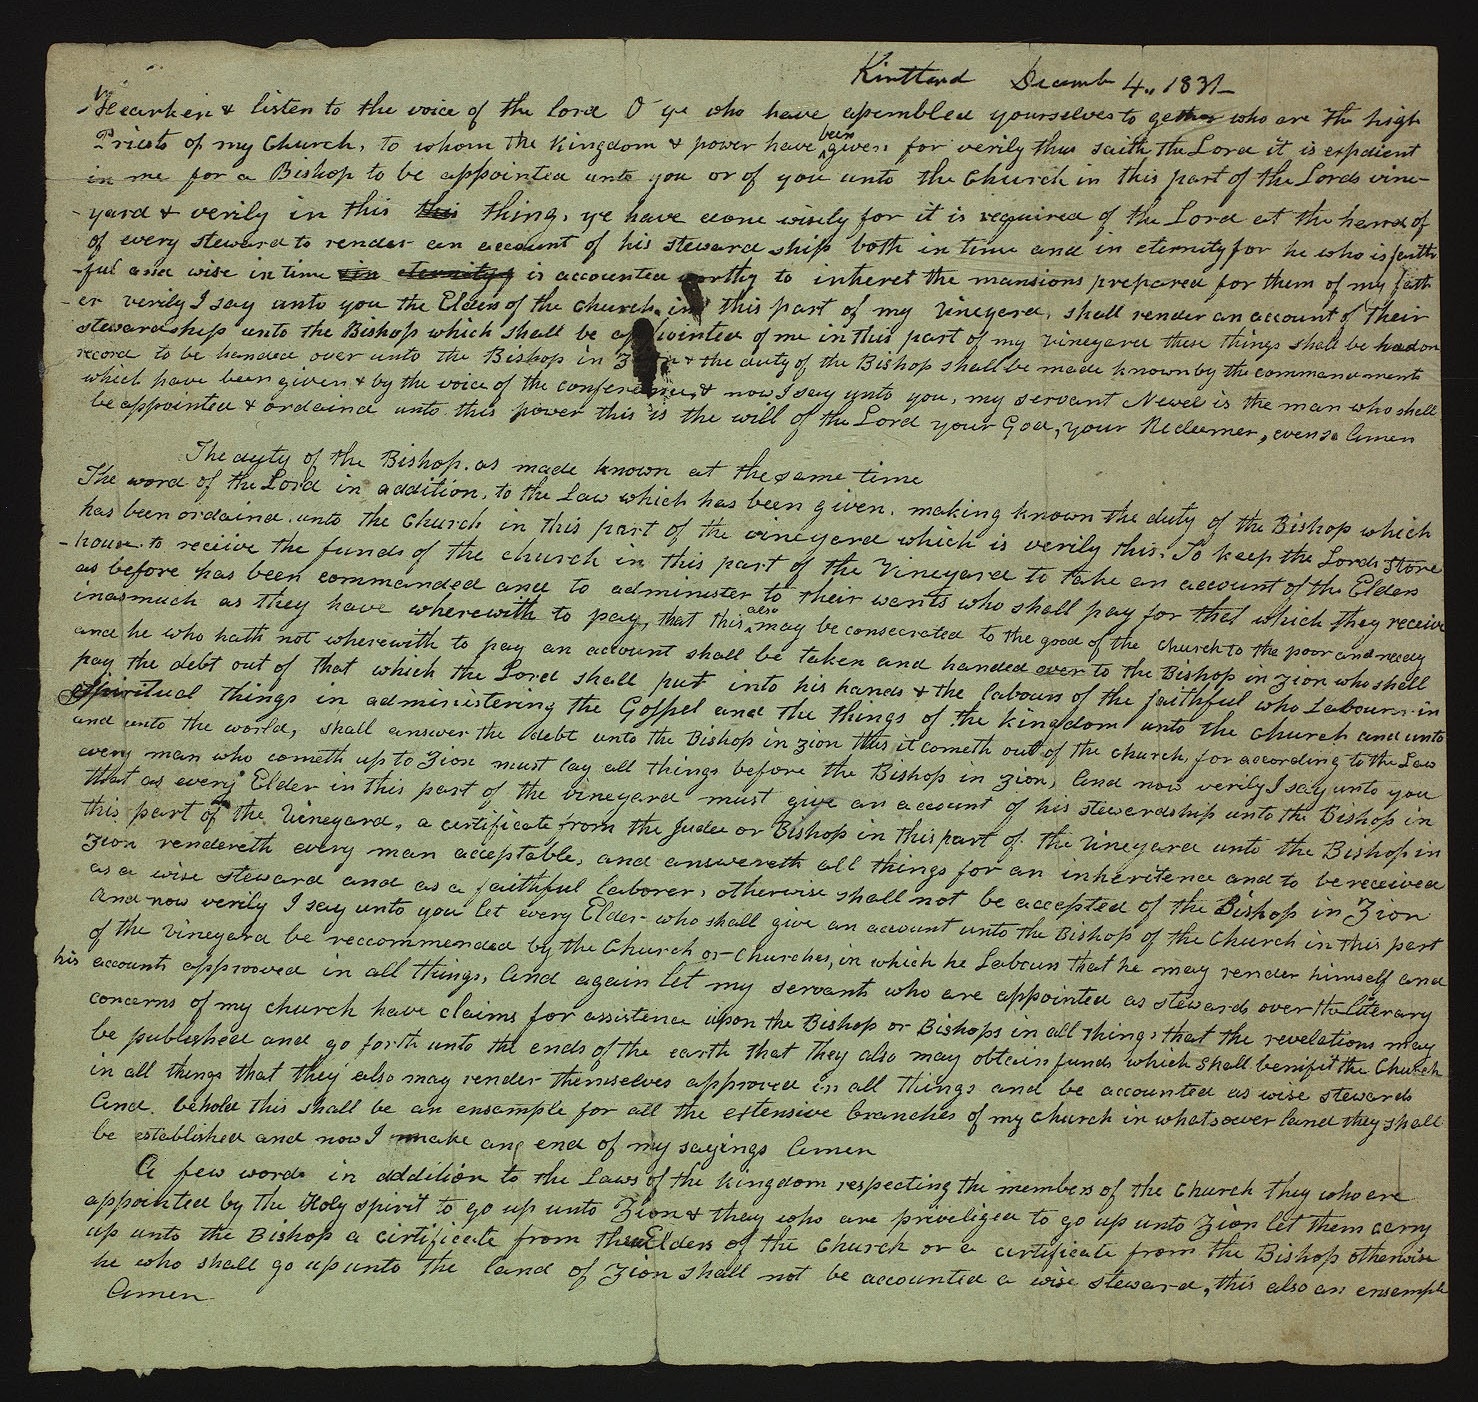 Kirtland Decemb 4., 1831—
Hearken & listen to the voice of the lord O ye who have assembled yourselves to gether who are the high
Priests of my Church, to whom the Kingdom & power have been given for verily thus saith the Lord it is expdient
in me for a Bishop to be appointed unto you or of you unto the Church in this part of the Lords vine-
-yard & verily in this this thing, ye have done wisely for it is required of the Lord at the hand of
of every steward to render an account of his steward ship both in time and in eternity for he who is faith
-ful and wise in time in eternity is accounted worthy to inheret the mansions prepared for them of my fath
-er verily I say unto you the Elders of the church in this part of my Vineyard, shall render an account of their
stewardship unto the Bishop which shall be appointed of me in this part of my vineyard these things shall be had on
record to be handed over unto the Bishop in Zion & the duty of the Bishop shall be made known by the commandments
which have been given & by the voice of the conference, & now I say unto you, my servant Newel is the man who shall
be appointed & ordaind unto this power this is the will of the Lord your God, your Redeemer, even so Amen
The duty of the Bishop. as made known at the same time
The word of the Lord in addition, to the Law which has been given. making known the duty of the Bishop which
has been ordaind. unto the Church in this part of the vineyard which is verily this. To keep the Lords store
-house. to receiive the funds of the church in this part of the Vineyard to take an account of the Elders
as before has been commanded and to administer to their wants who shall pay for that which they receive
inasmuch as they have wherewith to pay, that this also may be consecrated to the good of the church to the poor and needy
and he who hath not wherewith to pay an account shall be taken and handed over to the Bishop in zion who shall
pay the debt out of that which the Lord shall put into his hands & the labours of the faithful who Labours in
spiritual things in administering the Gospel and the things of the kingdom unto the church and unto
and unto the world, shall answer the debt unto the Bishop in zion thus it cometh out of the church, for according to the Law
every man who cometh up to Zion must lay all things before the Bishop in zion, And now verily I say unto you
that as every Elder in this part of the vineyard must give an account of his stewardship unto the Bishop in
this part of the Vineyard, a certificate from the Judee or Bishop in this part of the Vineyard unto the Bishop in
Zion rendereth every man acceptable, and answereth all things for an inheritence and to be received
as a wise steward and as a faithful laborer, otherwise shall not be accepted of the Bishop in Zion
And now verily I say unto you let every Elder who shall give an account unto the Bishop of the Church in this part
of the Vineyard be reccommended by the Church or Churches, in which he Labours that he may render himself and
his accounts approoved in all things, And again let my servants who are appointed as stewards over the Literary
concerns of my church have claims for assistence upon the Bishop or Bishops in all things that the revelations may
be published and go forth unto the ends of the earth that they also may obtain funds which shall benifit the Church
in all things that they also may render themselves approved in all things and be accounted as wise stewards
And. behold this shall be an ensample for all the extensive branches of my church in whatsoever land they shall
be established and now I make an end of my sayings Amen
A few words in addition to the Laws of the kingdom respecting the members of the Church they who are
appointed by the Holy spirit to go up unto Zion & they who are priveliged to go up unto Zion let them carry
up unto the Bishop a certificate from three Elders of the Church or a certificate from the Bishop otherwise
he who shall go up unto the land of Zion shall not be accounted a wise steward, this also an ensample
Amen